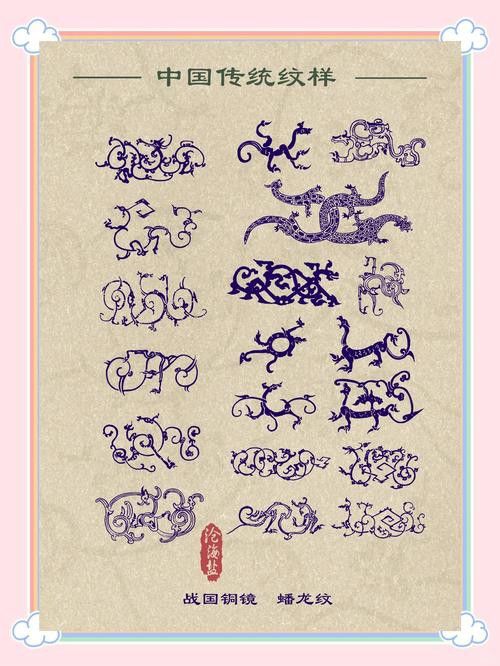 中国传统纹样
沧海盐
战国铜镜 蟠龙纹